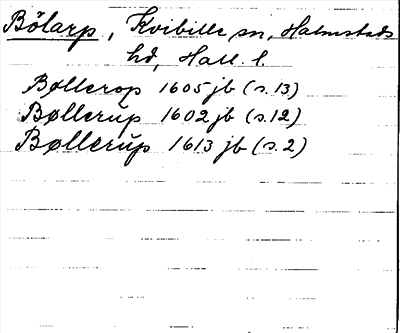 Bölarp, Kvibille sn, Halmstads
hd, Hall. l.
Bøllerop 1605 jb (s. 13)
Bøllerup 1602 jb (s. 12)
Bøllerŭp 1613 jb (s. 2)